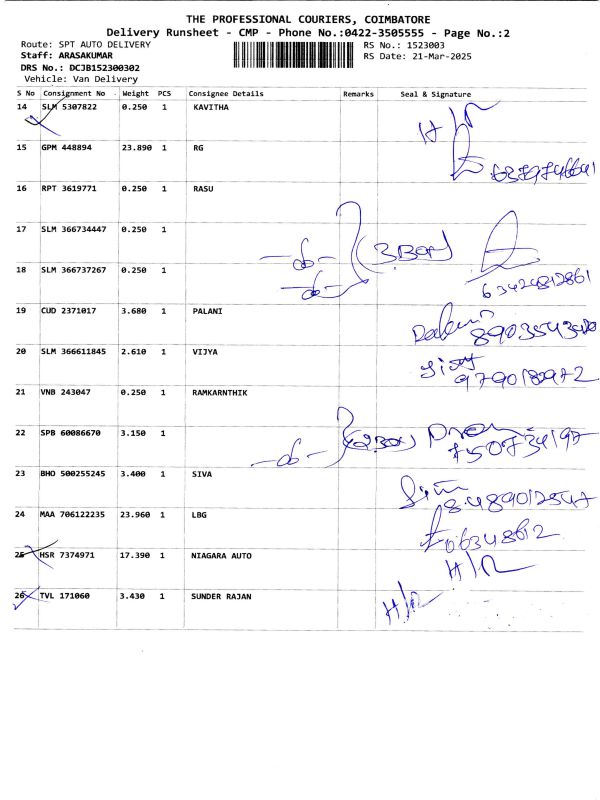 THE PROFESSIONAL COURIERS, COIMBATORE
Delivery Runsheet - CMP - Phone No.:0422-3505555 - Page No.:2
Route: SPT AUTO DELIVERY
RS No.: 1523003
Staff: ARASAKUMAR
RS Date: 21-Mar-2025
DRS No.: DCJB152300302
Vehicle: Van Delivery
S No Consignment No Weight PCS Consignee Details Remarks Seal & Signature
14 SLM 5307822 0.250 1 KAVITHA
15 GPM 448894 23.890 1 RG
16 RPT 3619771 0.250 1 RASU
17 SLM 366734447 0.250 1
18 SLM 366737267 0.250 1
19 CUD 2371017 3.680 1 PALANI
20 SLM 366611845 2.610 1 VIJYA
21 VNB 243047 0.250 1 RAMKARNTHIK
22 SPB 60086670 3.150 1
23 BHO 500255245 3.400 1 SIVA
24 MAA 706122235 23.960 1 LBG
25 HSR 7374971 17.390 1 NIAGARA AUTO
26 TVL 171060 3.430 1 SUNDER RAJAN